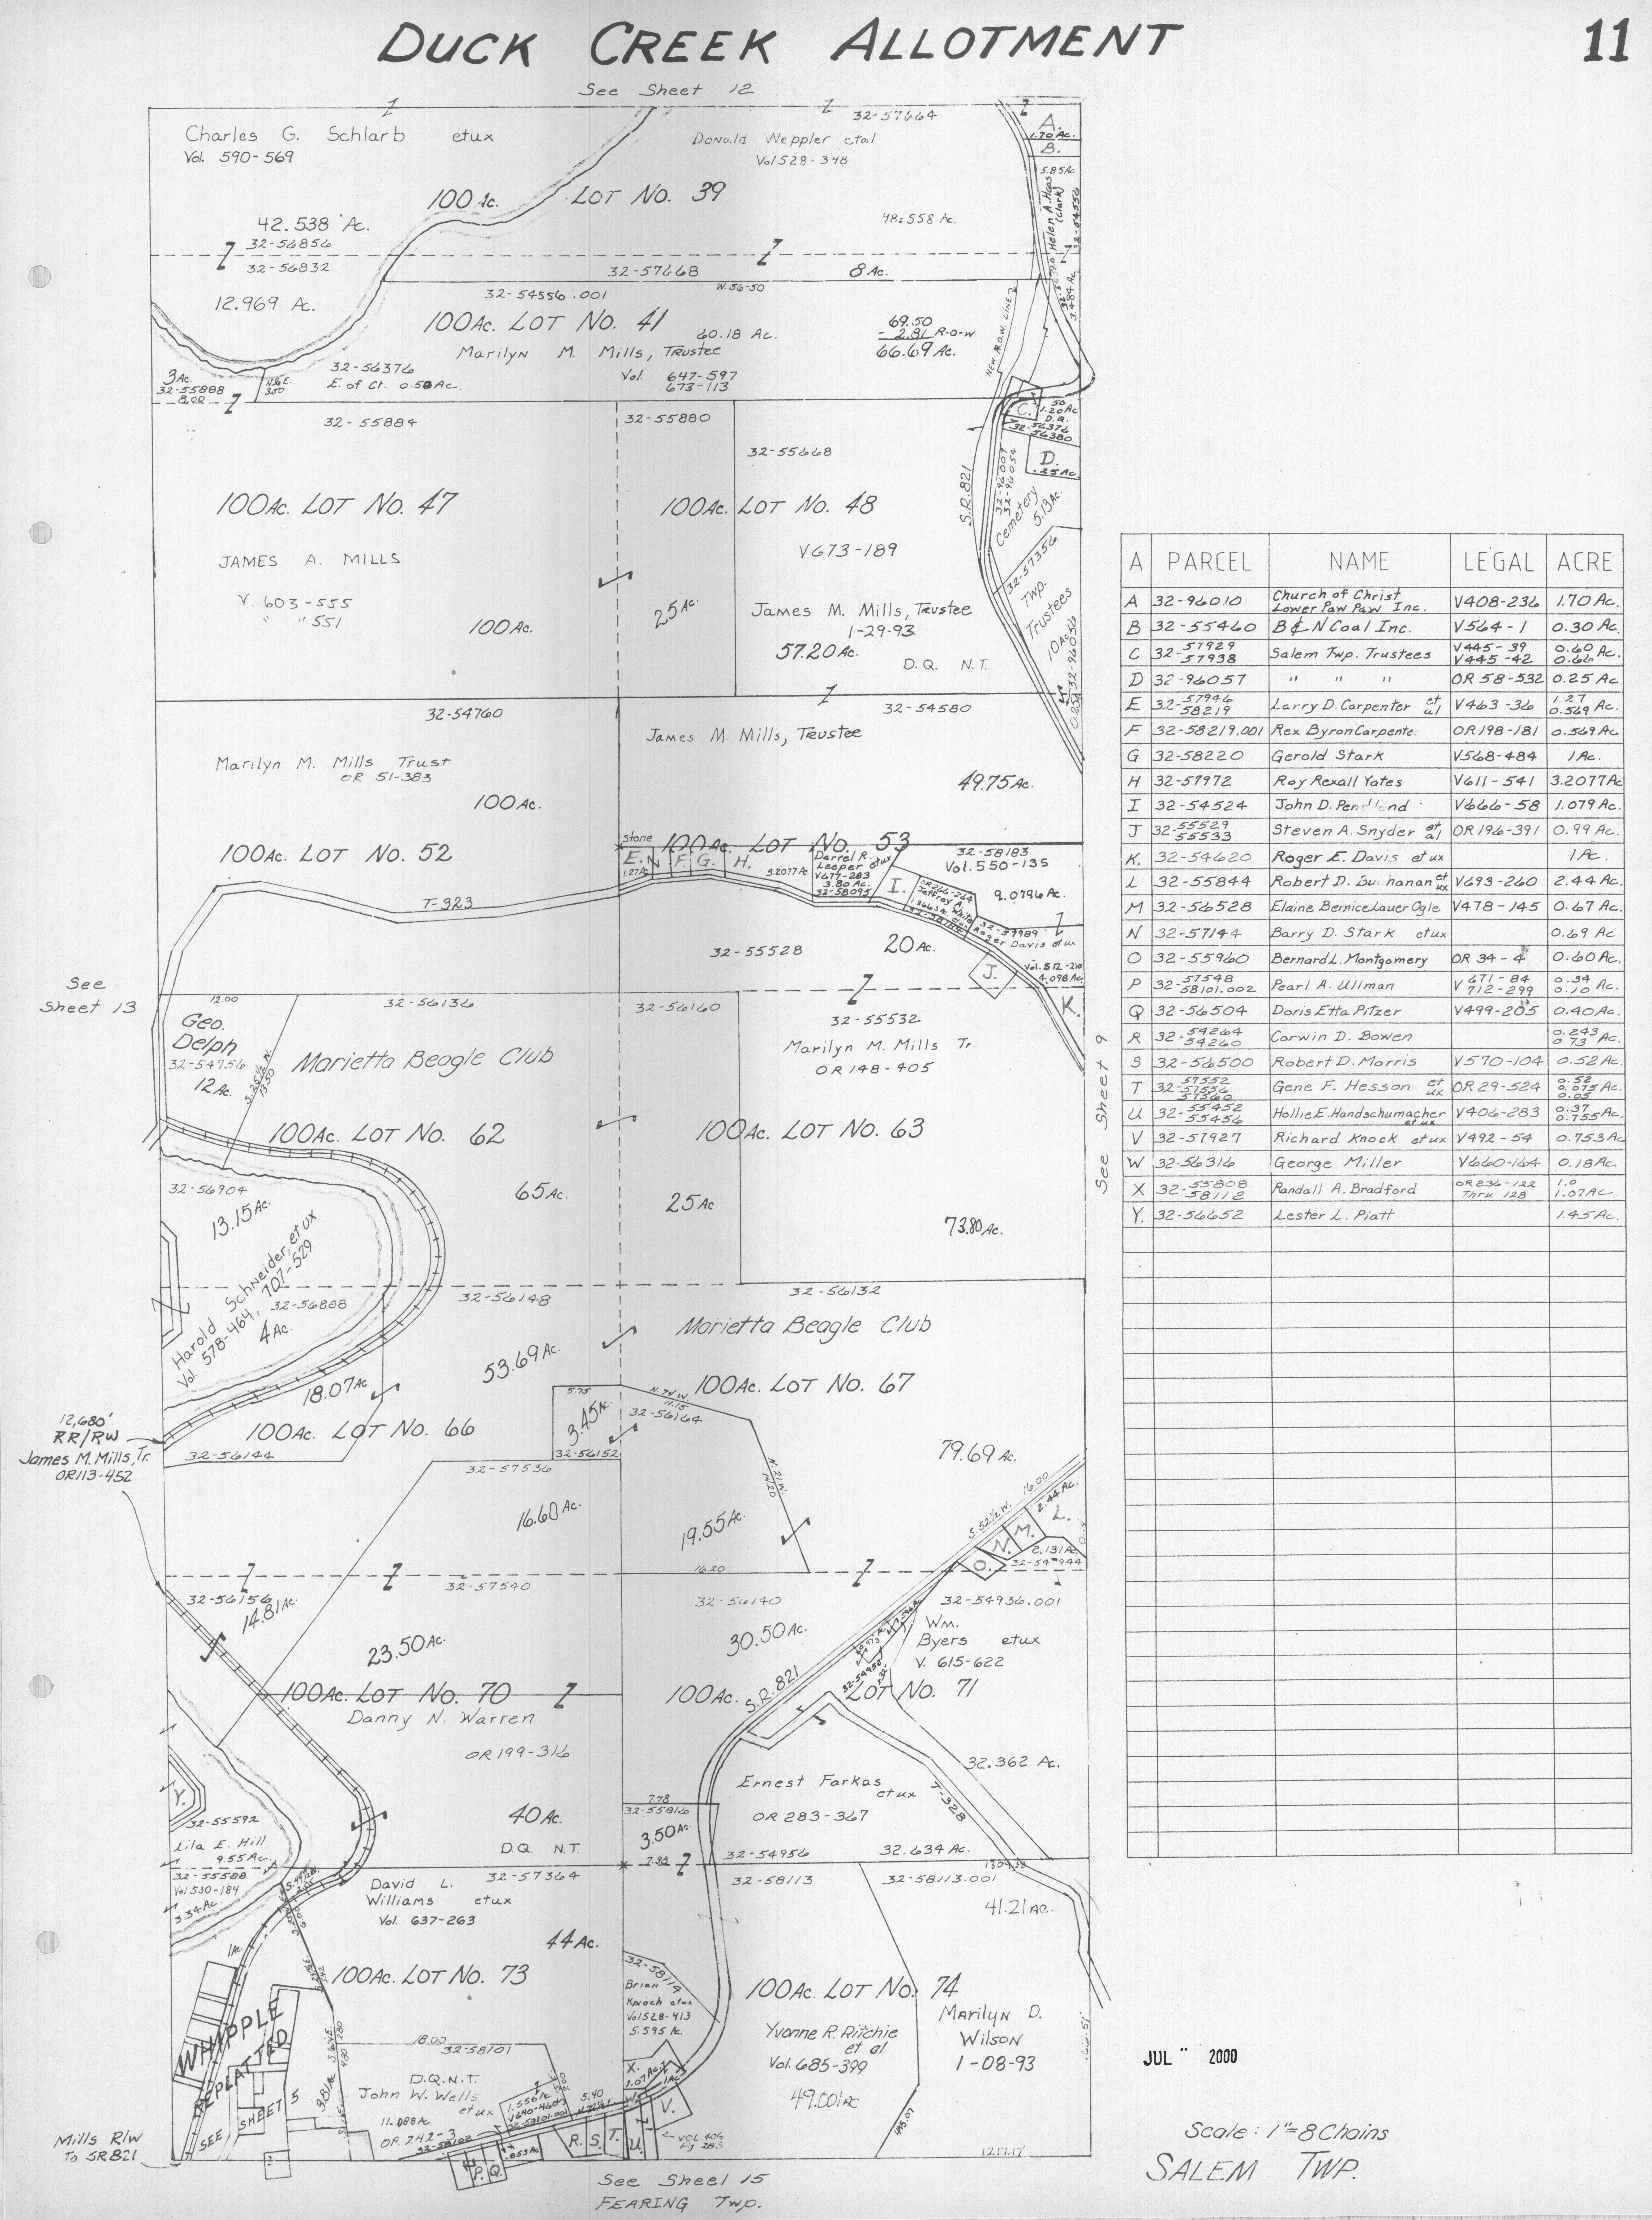 DUCK CREEK ALLOTMENT
11
See Sheet 12
Charles G. Schlarb etux
Vol. 590-569
42.538 Ac.
32-56856
32-56832
12.969 Ac.
100 Ac. LOT No. 39
Donald Weppler etal
Vol 528-348
32-57664
48.558 Ac.
32-57668
8 Ac.
A.
1.70 Ac.
B.
5.85 Ac
Helen A. Haas
(Clark)
32-54556
3.484 Ac
32-54556.001
W. 56-50
100 Ac. LOT No. 41
60.18 Ac.
Marilyn M. Mills, Trustee
Vol. 647-597
673-113
69.50
- 2.81 R-O-W
66.69 Ac.
NEW R.O.W. LINE
3 Ac.
32-55888
8.00
32-56376
E. of Cr. 0.50 Ac.
C.
.50
1.20 Ac
D.Q.
32-56376
32-56380
D.
.25 Ac
32-55884
100 Ac. LOT No. 47
JAMES A. MILLS
V. 603-555
" " 551
100 Ac.
32-55880
25 Ac.
32-55668
100 Ac. LOT No. 48
V673-189
James M. Mills, Trustee
1-29-93
57.20 Ac.
D.Q. N.T.
S.R. 821
32-96007
32-96054
Cemetery
5.13 Ac.
32-57356
Twp.
Trustees
10 Ac.
32-96056
32-54760
Marilyn M. Mills Trust
OR 51-383
100 Ac.
100 Ac. LOT No. 52
T-323
32-54580
James M. Mills, Trustee
49.75 Ac.
100 Ac. LOT No. 53
Stone
E.
N
F.
G.
H.
1.27 Ac
3.2077 Ac
Darrel R.
Leeper etux
V677-283
3.80 Ac.
32-58095
I.
OR 266-264
Jeffrey A.
White
32-58183
Vol. 550-135
9.0796 Ac.
32-57989
Roger Davis etux
Vol. 512-210
4.098 Ac
J.
K.
32-55528
20 Ac.
See
Sheet 13
12.00
Geo.
Delph
32-54756
12 Ac.
S. 25½ W.
13.50
32-56136
Marietta Beagle Club
100 Ac. LOT No. 62
65 Ac.
32-56160
25 Ac
32-55532
Marilyn M. Mills Tr.
OR 148-405
100 Ac. LOT No. 63
73.80 Ac.
See Sheet 9
32-56904
13.15 Ac.
Harold Schneider, etux
Vol. 578-464, 707-529
32-56888
4 Ac.
18.07 Ac
32-56148
53.69 Ac.
100 Ac. LOT No. 66
32-56144
12,680'
RR/RW
James M. Mills, Tr.
OR 113-452
32-56132
Marietta Beagle Club
100 Ac. LOT No. 67
79.69 Ac.
5.75
3.45 Ac.
32-56152
N. 74 W.
11.15
32-56164
N. 21 W.
14.20
19.55 Ac.
16.20
32-57536
16.60 Ac.
S. 52½ W. 16.00
2.44 Ac.
L.
M.
N.
O.
2.131 Ac.
32-54944
32-56156
14.81 Ac.
32-57540
23.50 Ac.
100 Ac. LOT No. 70
Danny N. Warren
OR 199-316
40 Ac.
D.Q. N.T.
32-56140
30.50 Ac.
S.R. 821
100 Ac. LOT No. 71
32-54936.001
Wm.
Byers etux
V. 615-622
32.362 Ac.
Ernest Farkas
etux
OR 283-367
T-328
32-54956
32.634 Ac.
7.78
32-55816
3.50 Ac.
7.39
Y.
32-55592
Lila E. Hill
9.55 Ac.
32-55588
Vol 530-184
3.34 Ac.
32-57364
David L.
Williams etux
Vol. 637-263
44 Ac.
100 Ac. LOT No. 73
1 Ac.
WHIPPLE
REPLATTED
SEE SHEET 5
3.81 Ac
18.00
32-58101
D.Q.N.T.
John W. Wells
etux
11.088 Ac
OR 242-3
32-58102
1.556 Ac
V640-460
5.40
P.
Q.
.053 Ac
R.
S.
T.
U.
V.
W.
X.
1.07 Ac
1 Ac
Vol. 406
Pg 283
32-58114
Brian
Knoch etux
Vol 528-413
5.595 Ac.
32-58113
32-58113.001
41.21 Ac.
100 Ac. LOT No. 74
Yvonne R. Ritchie
et al
Vol. 685-399
49.001 Ac
Marilyn D.
Wilson
1-08-93
1217.17'
Mills R/W
To SR 821
See Sheet 15
FEARING Twp.
A PARCEL NAME LEGAL ACRE
A 32-96010 Church of Christ Lower Paw Paw Inc. V408-236 1.70 Ac.
B 32-55460 B & N Coal Inc. V564-1 0.30 Ac.
C 32-57929 57938 Salem Twp. Trustees V445-39 V445-42 0.60 0.66 Ac.
D 32-96057 " " " OR 58-532 0.25 Ac
E 32-57946 58219 Larry D. Carpenter et al V463-36 1.27 0.569 Ac.
F 32-58219.001 Rex Byron Carpente OR 198-181 0.569 Ac
G 32-58220 Gerold Stark V568-484 1 Ac.
H 32-57972 Roy Rexall Yates V611-541 3.2077 Ac
I 32-54524 John D. Pendland V666-58 1.079 Ac.
J 32-55529 55533 Steven A. Snyder et al OR 196-391 0.99 Ac.
K. 32-54620 Roger E. Davis etux 1 Ac.
L 32-55844 Robert D. Buchanan et ux V693-260 2.44 Ac.
M 32-56528 Elaine Bernice Lauer Ogle V478-145 0.67 Ac.
N 32-57144 Barry D. Stark etux 0.69 Ac
O 32-55960 Bernard L. Montgomery OR 34-4 0.60 Ac.
P 32-57548 58101.002 Pearl A. Ullman V 671-84 712-299 0.34 0.10 Ac.
Q 32-56504 Doris Etta Pitzer V499-205 0.40 Ac.
R 32-54264 54260 Corwin D. Bowen 0.243 0.73 Ac.
S 32-56500 Robert D. Morris V570-104 0.52 Ac.
T 32-57552 57556 57560 Gene F. Hesson et ux OR 29-524 0.52 0.075 0.05 Ac.
U 32-55452 55456 Hollie E. Handschumacher etux V406-283 0.37 0.755 Ac.
V 32-57927 Richard Knock etux V492-54 0.753 Ac
W 32-56316 George Miller V660-164 0.18 Ac.
X 32-55808 58112 Randall A. Bradford OR 236-122 Thru 128 1.0 1.07 AC.
Y. 32-56652 Lester L. Piatt 1.45 Ac.
JUL 2000
Scale: 1"=8 Chains
SALEM TWP.